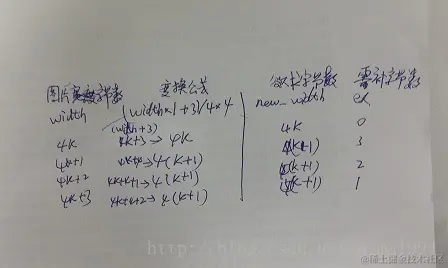 图片宽度字节数 变换公式 欲求字节数 需补字节数
width (width×1+3)/4×4 new_width ex
(width+3)
4k 4k+3→4k 4k 0
4k+1 4k+4→4(k+1) 4(k+1) 3
4k+2 4k+4+1→4(k+1) 4(k+1) 2
4k+3 4k+4+2→4(k+1) 4(k+1) 1
@稀土掘金技术社区